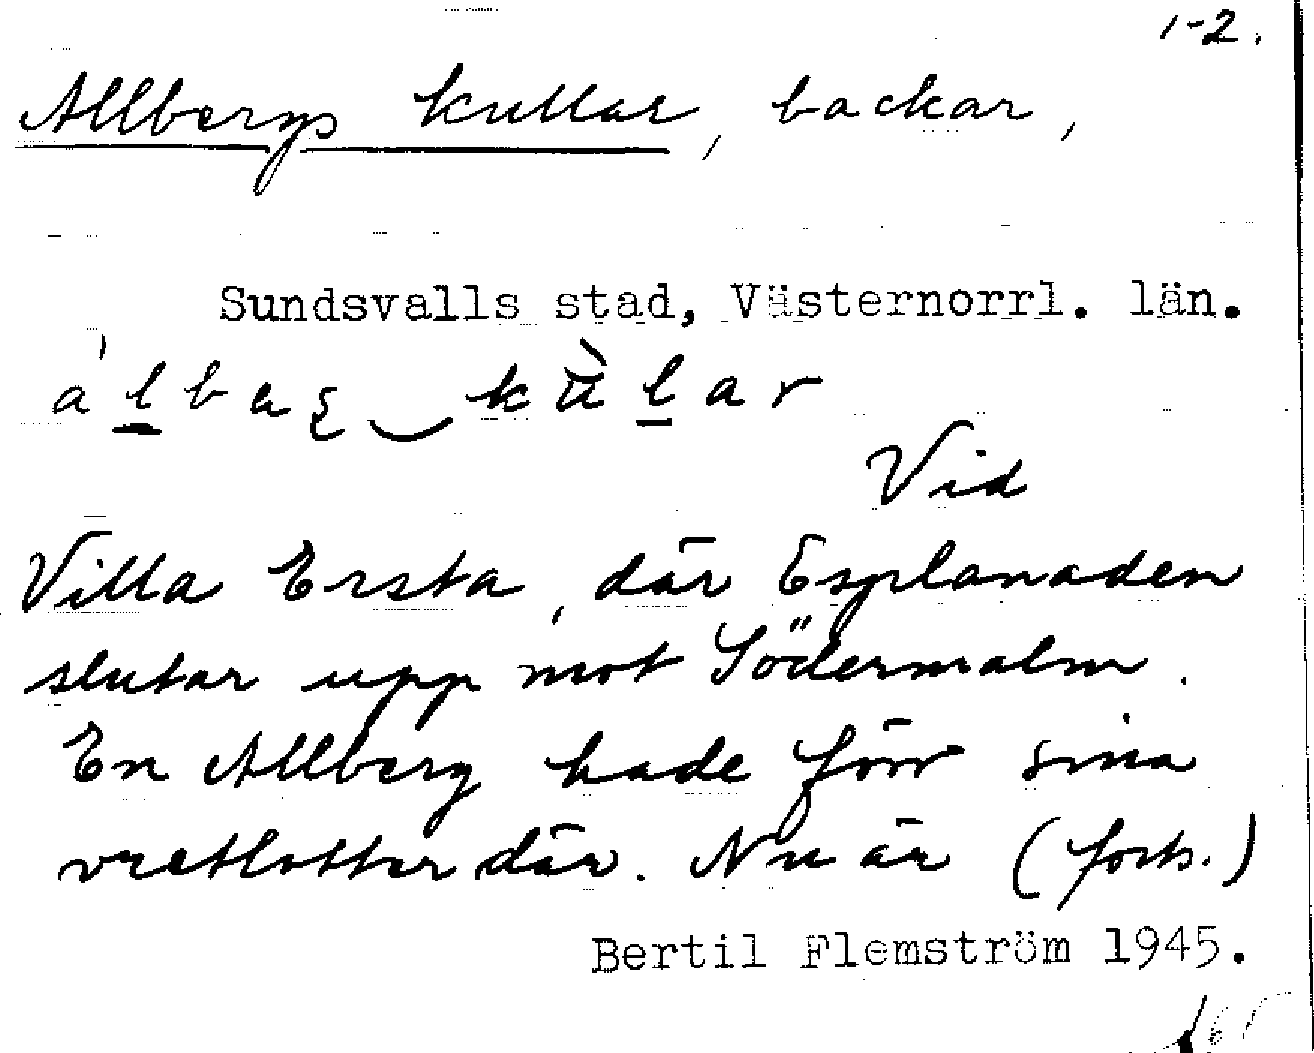 1-2.
Allbergs kullar, backar,
Sundsvalls stad, Västernorrl. län.
Vid
Villa Ersta, där Esplanaden
slutar upp mot Södermalm.
En Allberg hade förr sina
vretlotter där. Nu är (forts.)
Bertil Flemström 1945.